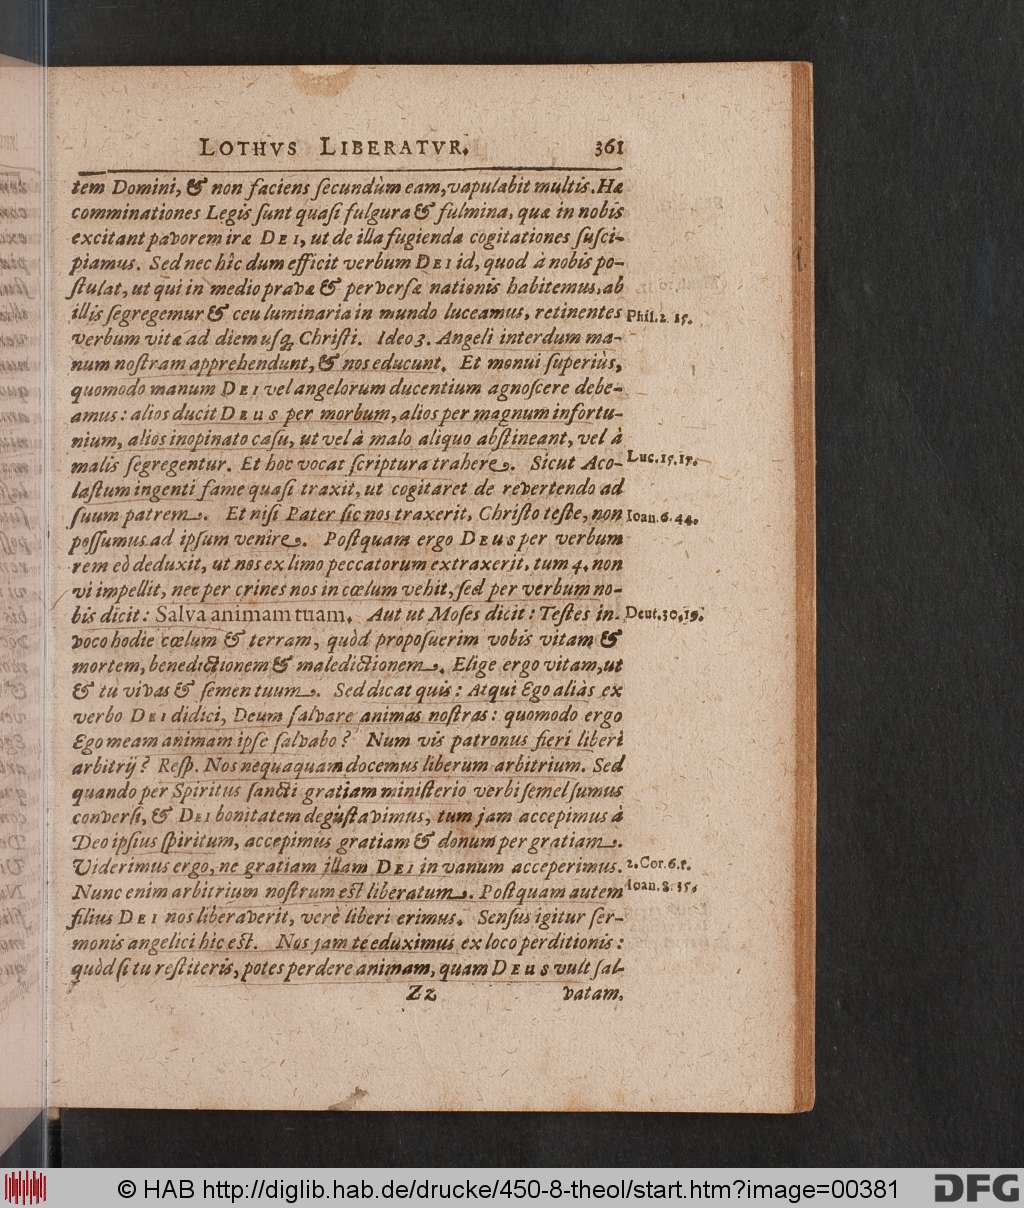 LOTHVS LIBERATVR. 361
tem Domini, & non faciens ſecundùm eam, vapulabit multis. Hæ
comminationes Legis ſunt quaſi fulgura & fulmina, quæ in nobis
excitant pavorem iræ DEI, ut de illa fugienda cogitationes ſuſci-
piamus. Sed nec hîc dum efficit verbum DEI id, quod à nobis po-
ſtulat, ut qui in medio pravæ & perverſæ nationis habitemus, ab
illis ſegregemur & ceu luminaria in mundo luceamus, retinentes Phil. 2. 15.
verbum vitæ ad diem uſq́ Chriſti. Ideo 3. Angeli interdum ma-
num noſtram apprehendunt, & nos educunt. Et monui ſuperiùs,
quomodo manum DEI vel angelorum ducentium agnoſcere debe-
amus: alios ducit DEUS per morbum, alios per magnum infortu-
nium, alios inopinato caſu, ut vel à malo aliquo abſtineant, vel à
malis ſegregentur. Et hoc vocat ſcriptura trahere. Sicut Aco- Luc. 15. 17.
laſtum ingenti fame quaſi traxit, ut cogitaret de revertendo ad
ſuum patrem. Et niſi Pater ſic nos traxerit, Chriſto teſte, non Ioan. 6. 44.
poſſumus ad ipſum venire. Poſtquam ergo DEUS per verbum
rem eò deduxit, ut nos ex limo peccatorum extraxerit, tum 4. non
vi impellit, nec per crines nos in cœlum vehit, ſed per verbum no-
bis dicit: Salva animam tuam. Aut ut Moſes dicit: Teſtes in- Deut. 30. 19.
voco hodie cœlum & terram, quòd propoſuerim vobis vitam &
mortem, benedictionem & maledictionem. Elige ergo vitam, ut
& tu vivas & ſemen tuum. Sed dicat quis: Atqui Ego aliàs ex
verbo DEI didici, Deum ſalvare animas noſtras: quomodo ergo
Ego meam animam ipſe ſalvabo? Num vis patronus fieri liberi
arbitrij? Reſp. Nos nequaquam docemus liberum arbitrium. Sed
quando per Spiritus ſancti gratiam miniſterio verbi ſemel ſumus
converſi, & DEI bonitatem deguſtavimus, tum jam accepimus à
Deo ipſius ſpiritum, accepimus gratiam & donum per gratiam.
Viderimus ergo, ne gratiam illam DEI in vanum acceperimus. 2. Cor. 6. 1.
Nunc enim arbitrium noſtrum eſt liberatum. Poſtquam autem Ioan. 8. 35.
filius DEI nos liberaverit, verè liberi erimus. Senſus igitur ſer-
monis angelici hic eſt. Nos jam te eduximus ex loco perditionis:
quòd ſi tu reſtiteris, potes perdere animam, quam DEUS vult ſal-
Zz vatam.
© HAB http://diglib.hab.de/drucke/450-8-theol/start.htm?image=00381
DFG